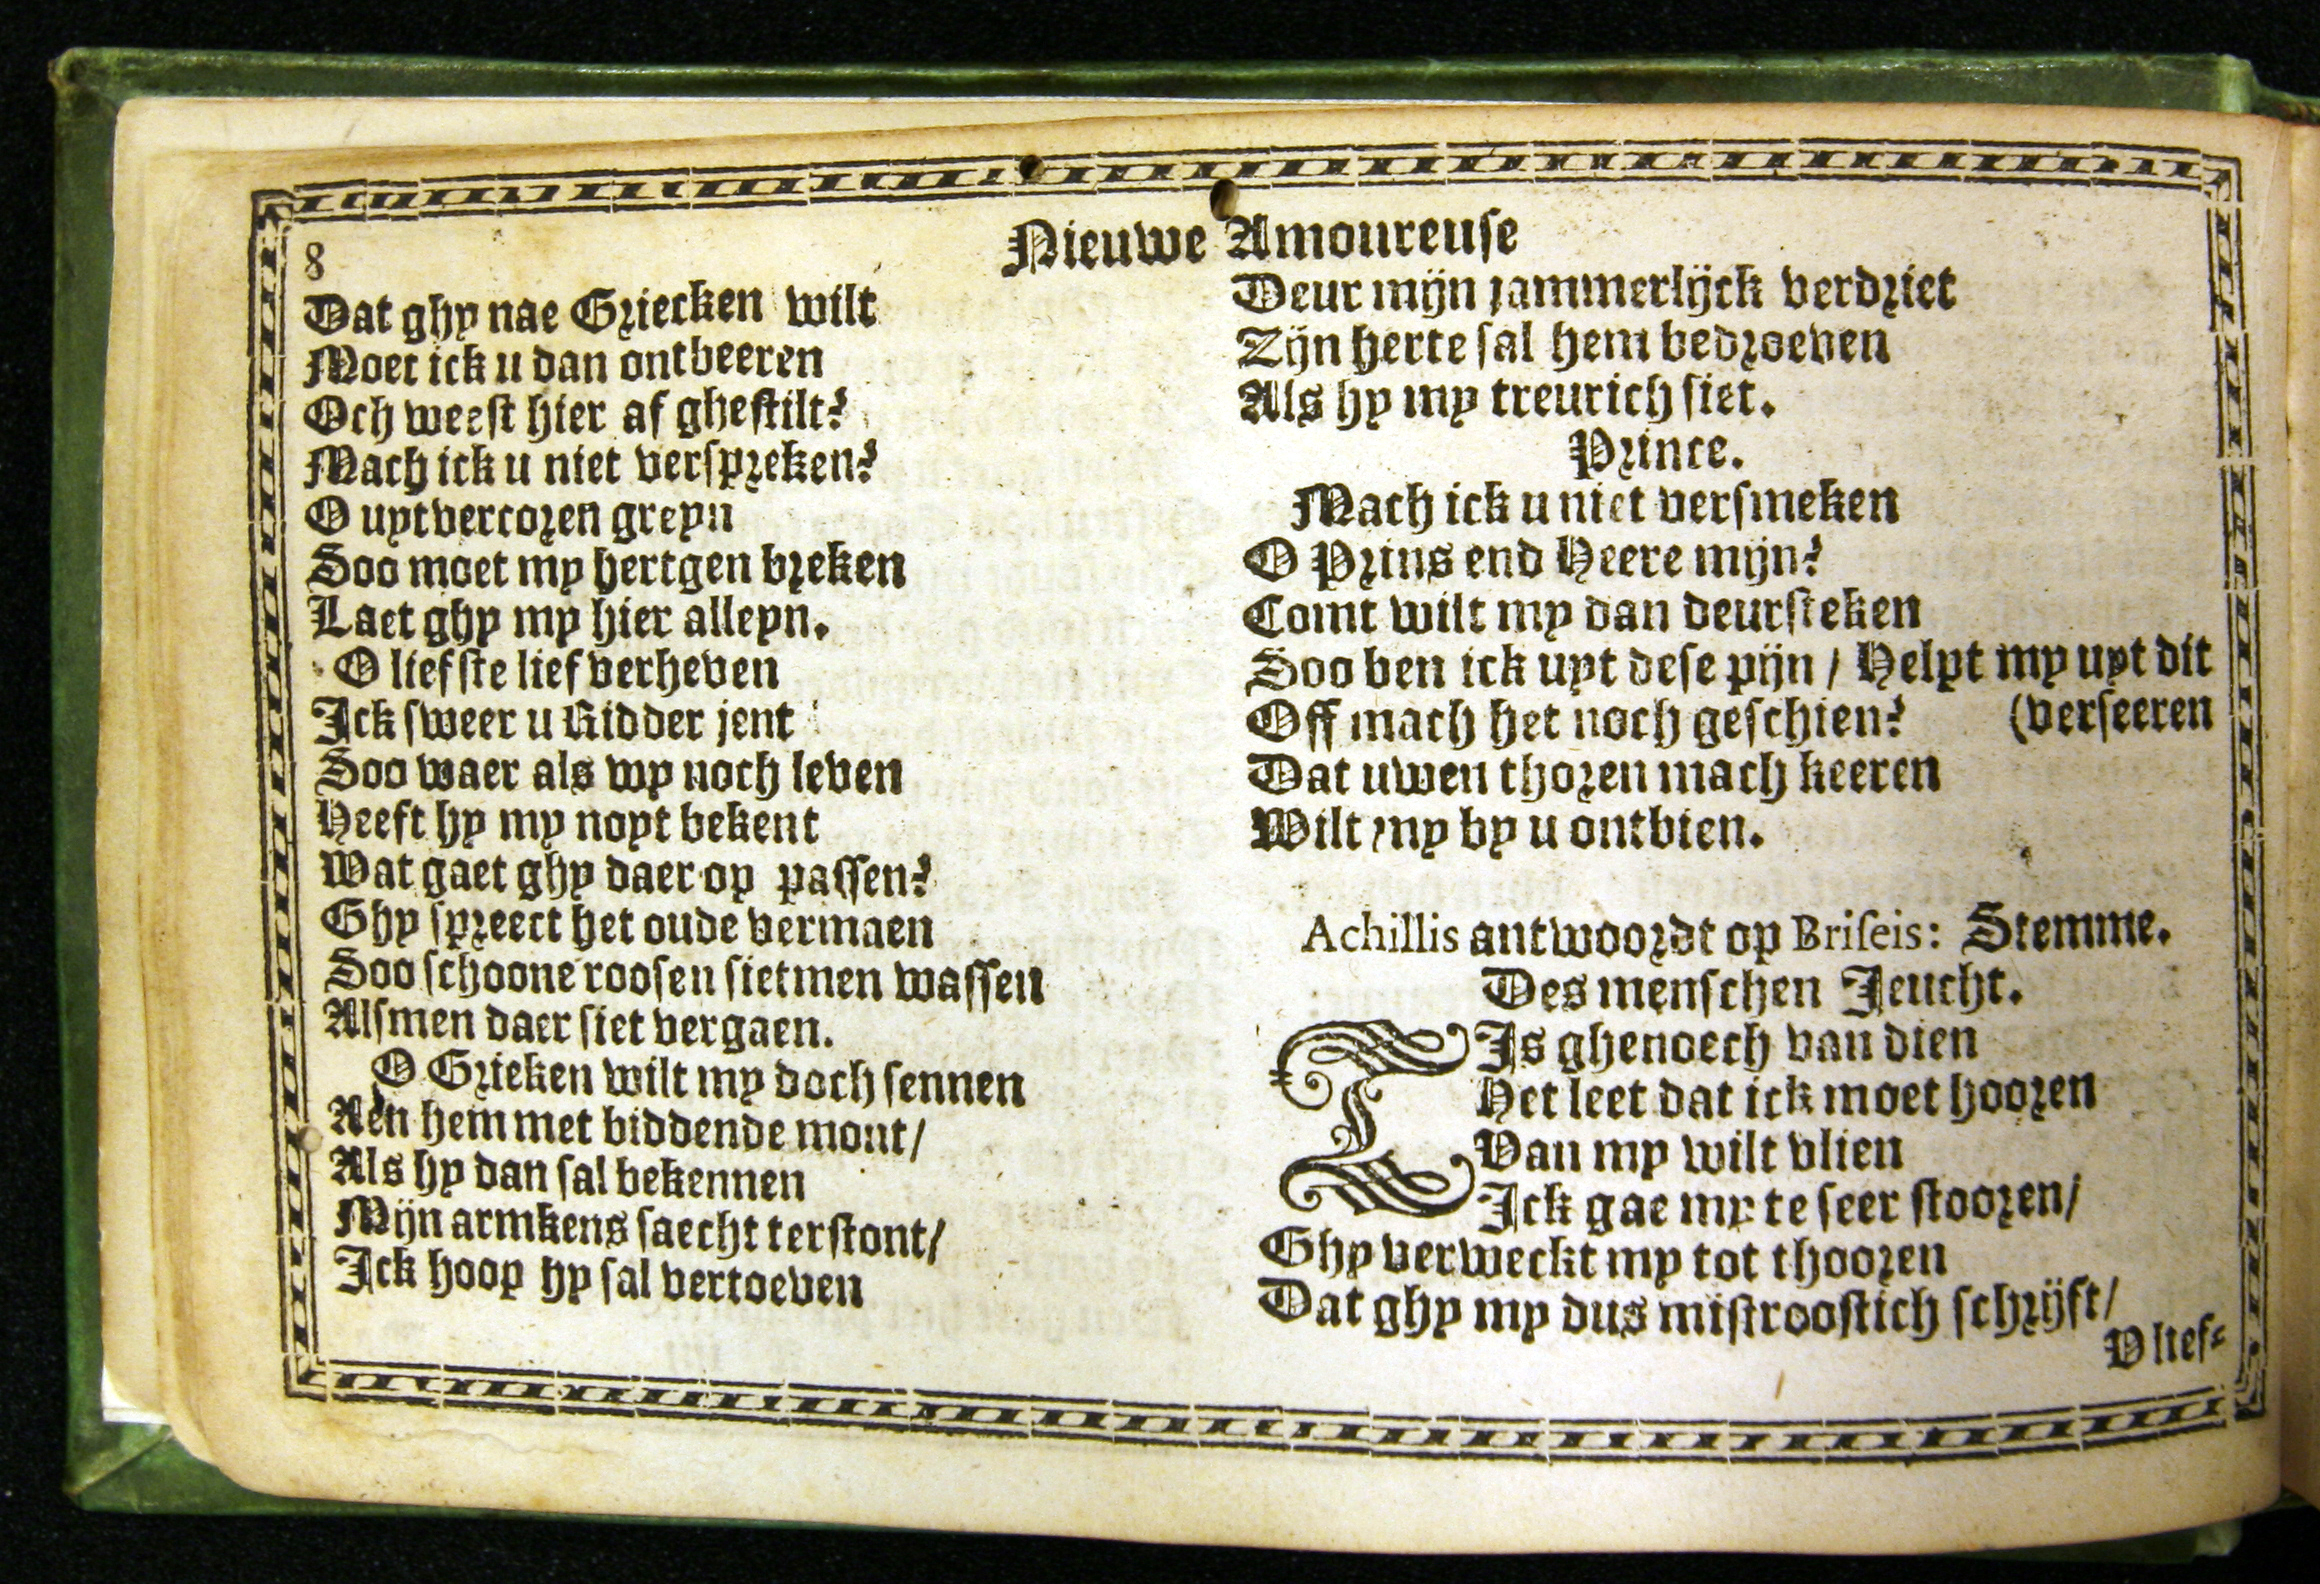 8
Nieuwe Amoureuse
Dat ghy nae Griecken wilt
Moet ick u dan ontbeeren
Och weest hier af ghestilt?
Mach ick u niet verspreken?
O uytvercoren greyn
Soo moet my hertgen breken
Laet ghy my hier alleyn.
O liefste lief verheven
Ick sweer u Ridder jent
Soo waer als wy noch leven
Heeft hy my noyt bekent
Wat gaet ghy daer op passen?
Ghy spreect het oude vermaen
Soo schoone roosen sietmen wassen
Alsmen daer siet vergaen.
O Grieken wilt my doch sennen
Aen hem met biddende mont/
Als hy dan sal bekennen
Mijn armkens saecht terstont/
Ick hoop hy sal vertoeven
Deur mijn jammerlijck verdriet
Zijn herte sal hem bedroeven
Als hy my treurich siet.
Prince.
Mach ick u niet versmeken
O Prins end Heere mijn?
Comt wilt my dan deursteken
Soo ben ick uyt dese pijn / Helpt my uyt dit
Off mach het noch geschien? (verseeren
Dat uwen thoren mach keeren
Wilt my by u ontbien.
Achillis antwoordt op Briseis: Stemme.
Des menschen Jeucht.
TIs ghenoech van dien
Het leet dat ick moet hooren
Van my wilt vlien
Ick gae my te seer stooren/
Ghy verweckt my tot thooren
Dat ghy my dus mistroostich schrijft/
V lief-